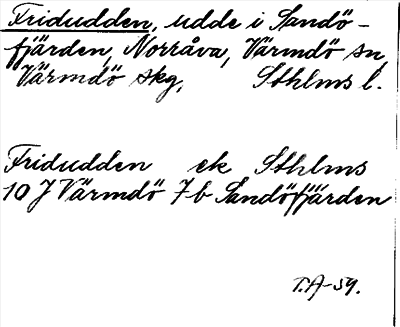 Fridudden, udde i Sandö-
fjärden, Norråva, Värmdö sn,
Värmdö skg, Sthlms l.
Fridudden ek Sthlms
10 J Värmdö 7b Sandöfjärden
T.A-59.